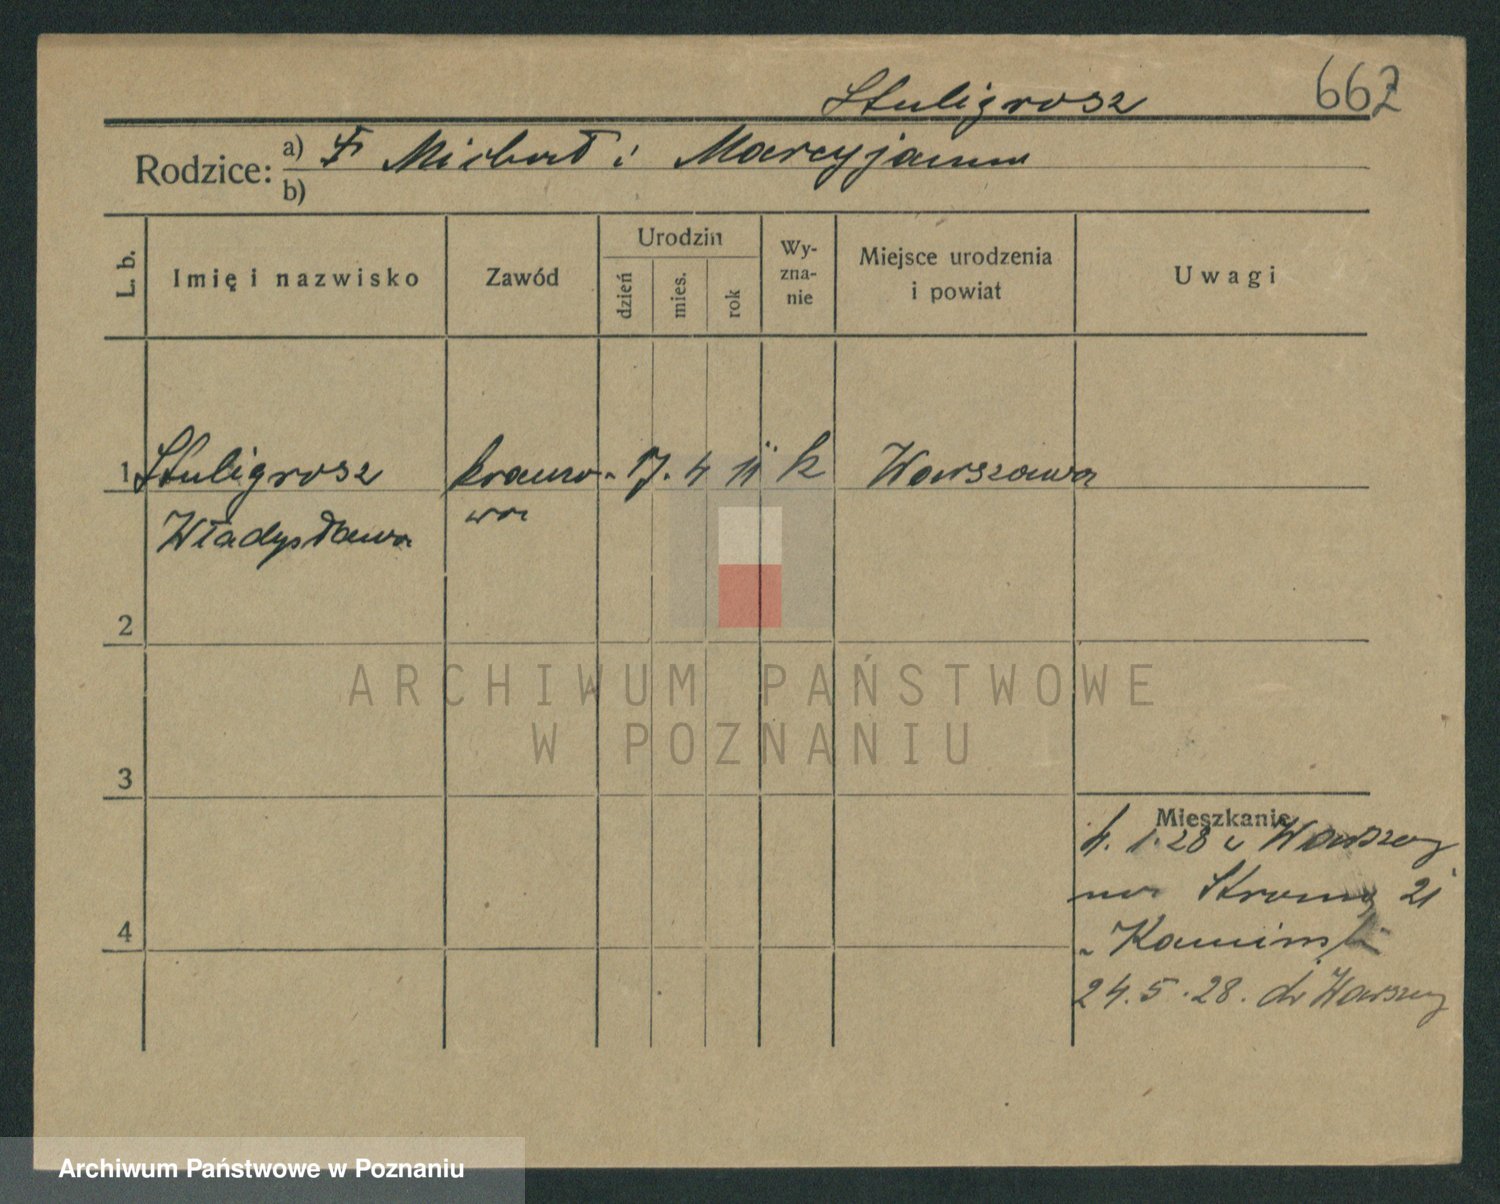 Stuligrosz
662
Rodzice: a) Michał i Marcyjanna
b)
L. b.
Imię i nazwisko
Zawód
Urodzin
dzień
mies.
rok
Wy-
zna-
nie
Miejsce urodzenia
i powiat
Uwagi
1 Stuligrosz krawco- 17. 4 11 k Warszawa
Władysława wa
2
3
4
Mieszkanie
4. 1. 28 z Warszawy
na 21
24. 5. 28. do Warszawy
ARCHIWUM PAŃSTWOWE
W POZNANIU
Archiwum Państwowe w Poznaniu